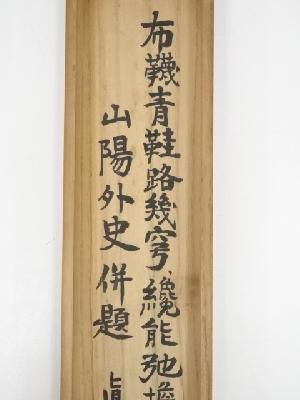 布韈青鞋路幾穹纔能弛擔
山陽外史併題 真